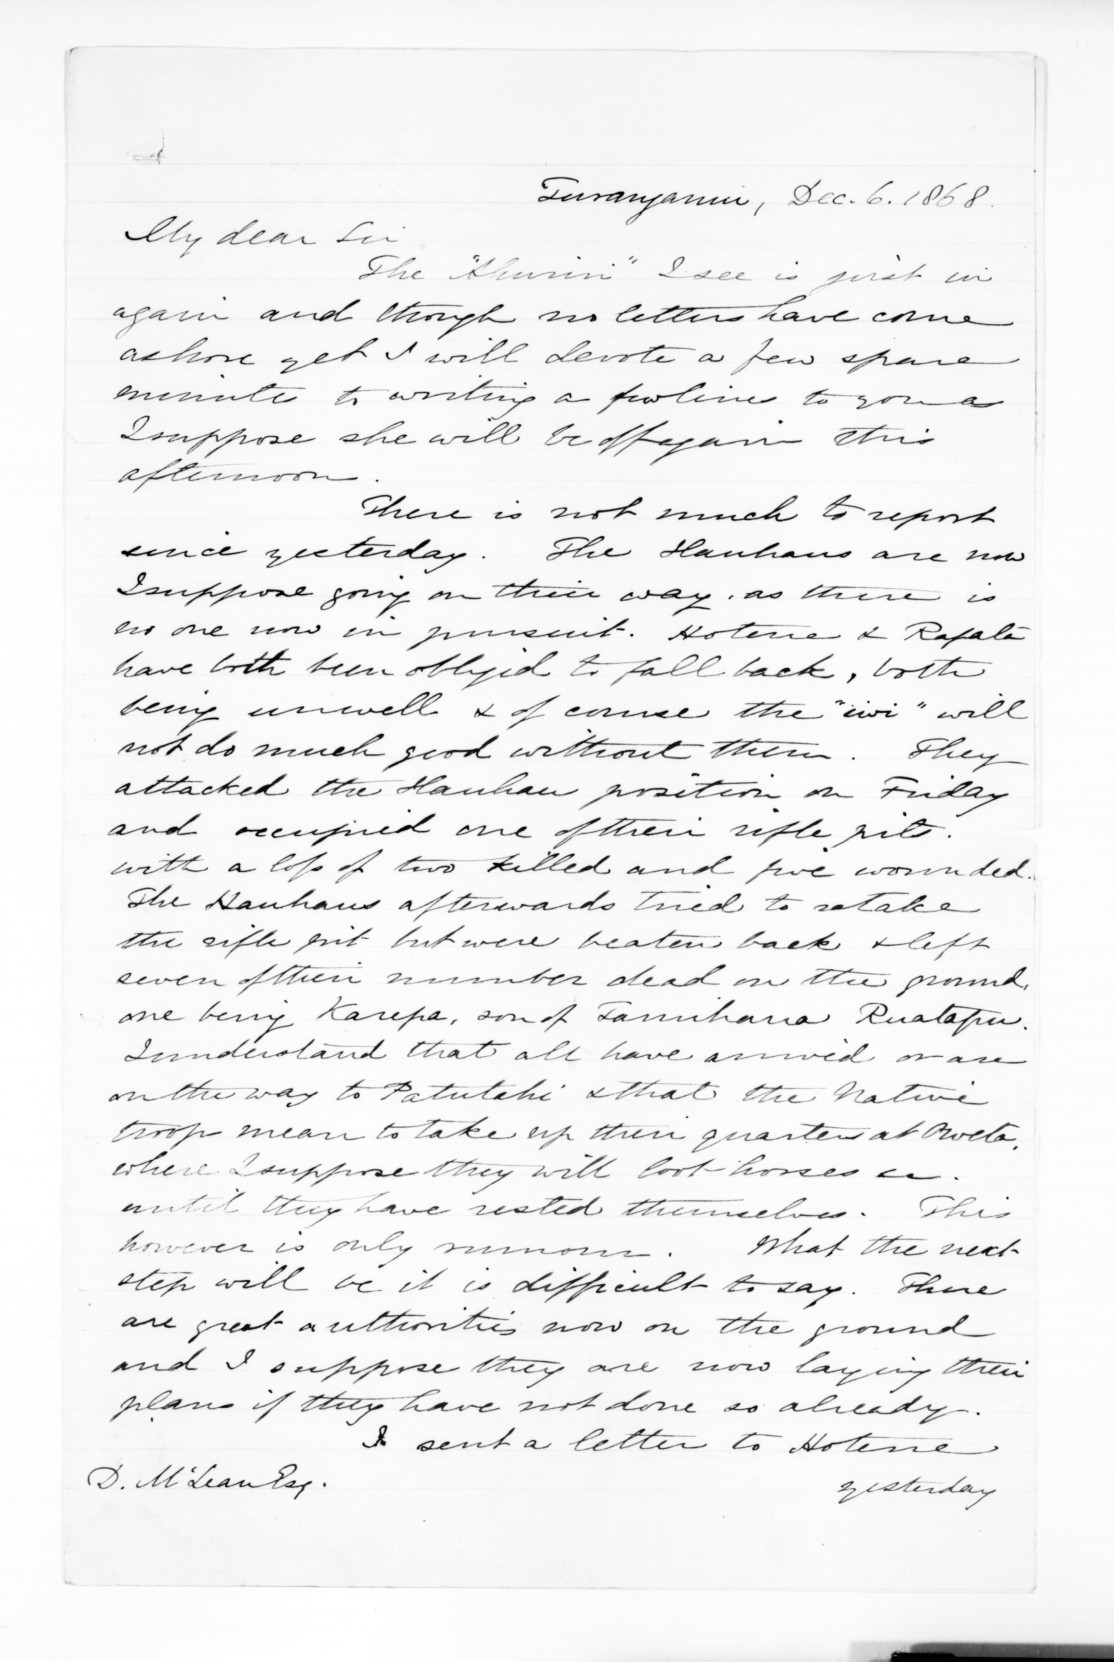 Turanganui, Dec. 6. 1868.
My dear Sir
The "Ahuriri" I see is just in
again and though no letters have come
ashore yet I will devote a few spare
minutes to writing a few lines to you as
I suppose she will be off again this
afternoon.
There is not much to report
since yesterday. The Hauhaus are now
I suppose going on their way. as there is
no one now in pursuit. Hotene & Rapata
have both been obliged to fall back, both
being unwell & of course the "iwi" will
not do much good without them. They
attacked the Hauhau position on Friday
and occupied one of their rifle pits.
with a loss of two killed and five wounded.
The Hauhaus afterwards tried to retake
the rifle pit but were beaten back & left
seven of their number dead on the ground,
one being Karepa, son of Tamihana Ruatapu.
I understand that all have arrived or are
on the way to Patutahi & that the Native
troops mean to take up their quarters at Oweta,
where I suppose they will loot horses &c.
until they have rested themselves. This
however is only rumour. What the next
step will be it is difficult to say. There
are great authorities now on the ground
and I suppose they are now laying their
plans if they have not done so already.
I sent a letter to Hotene
D. McLean Esq.
yesterday